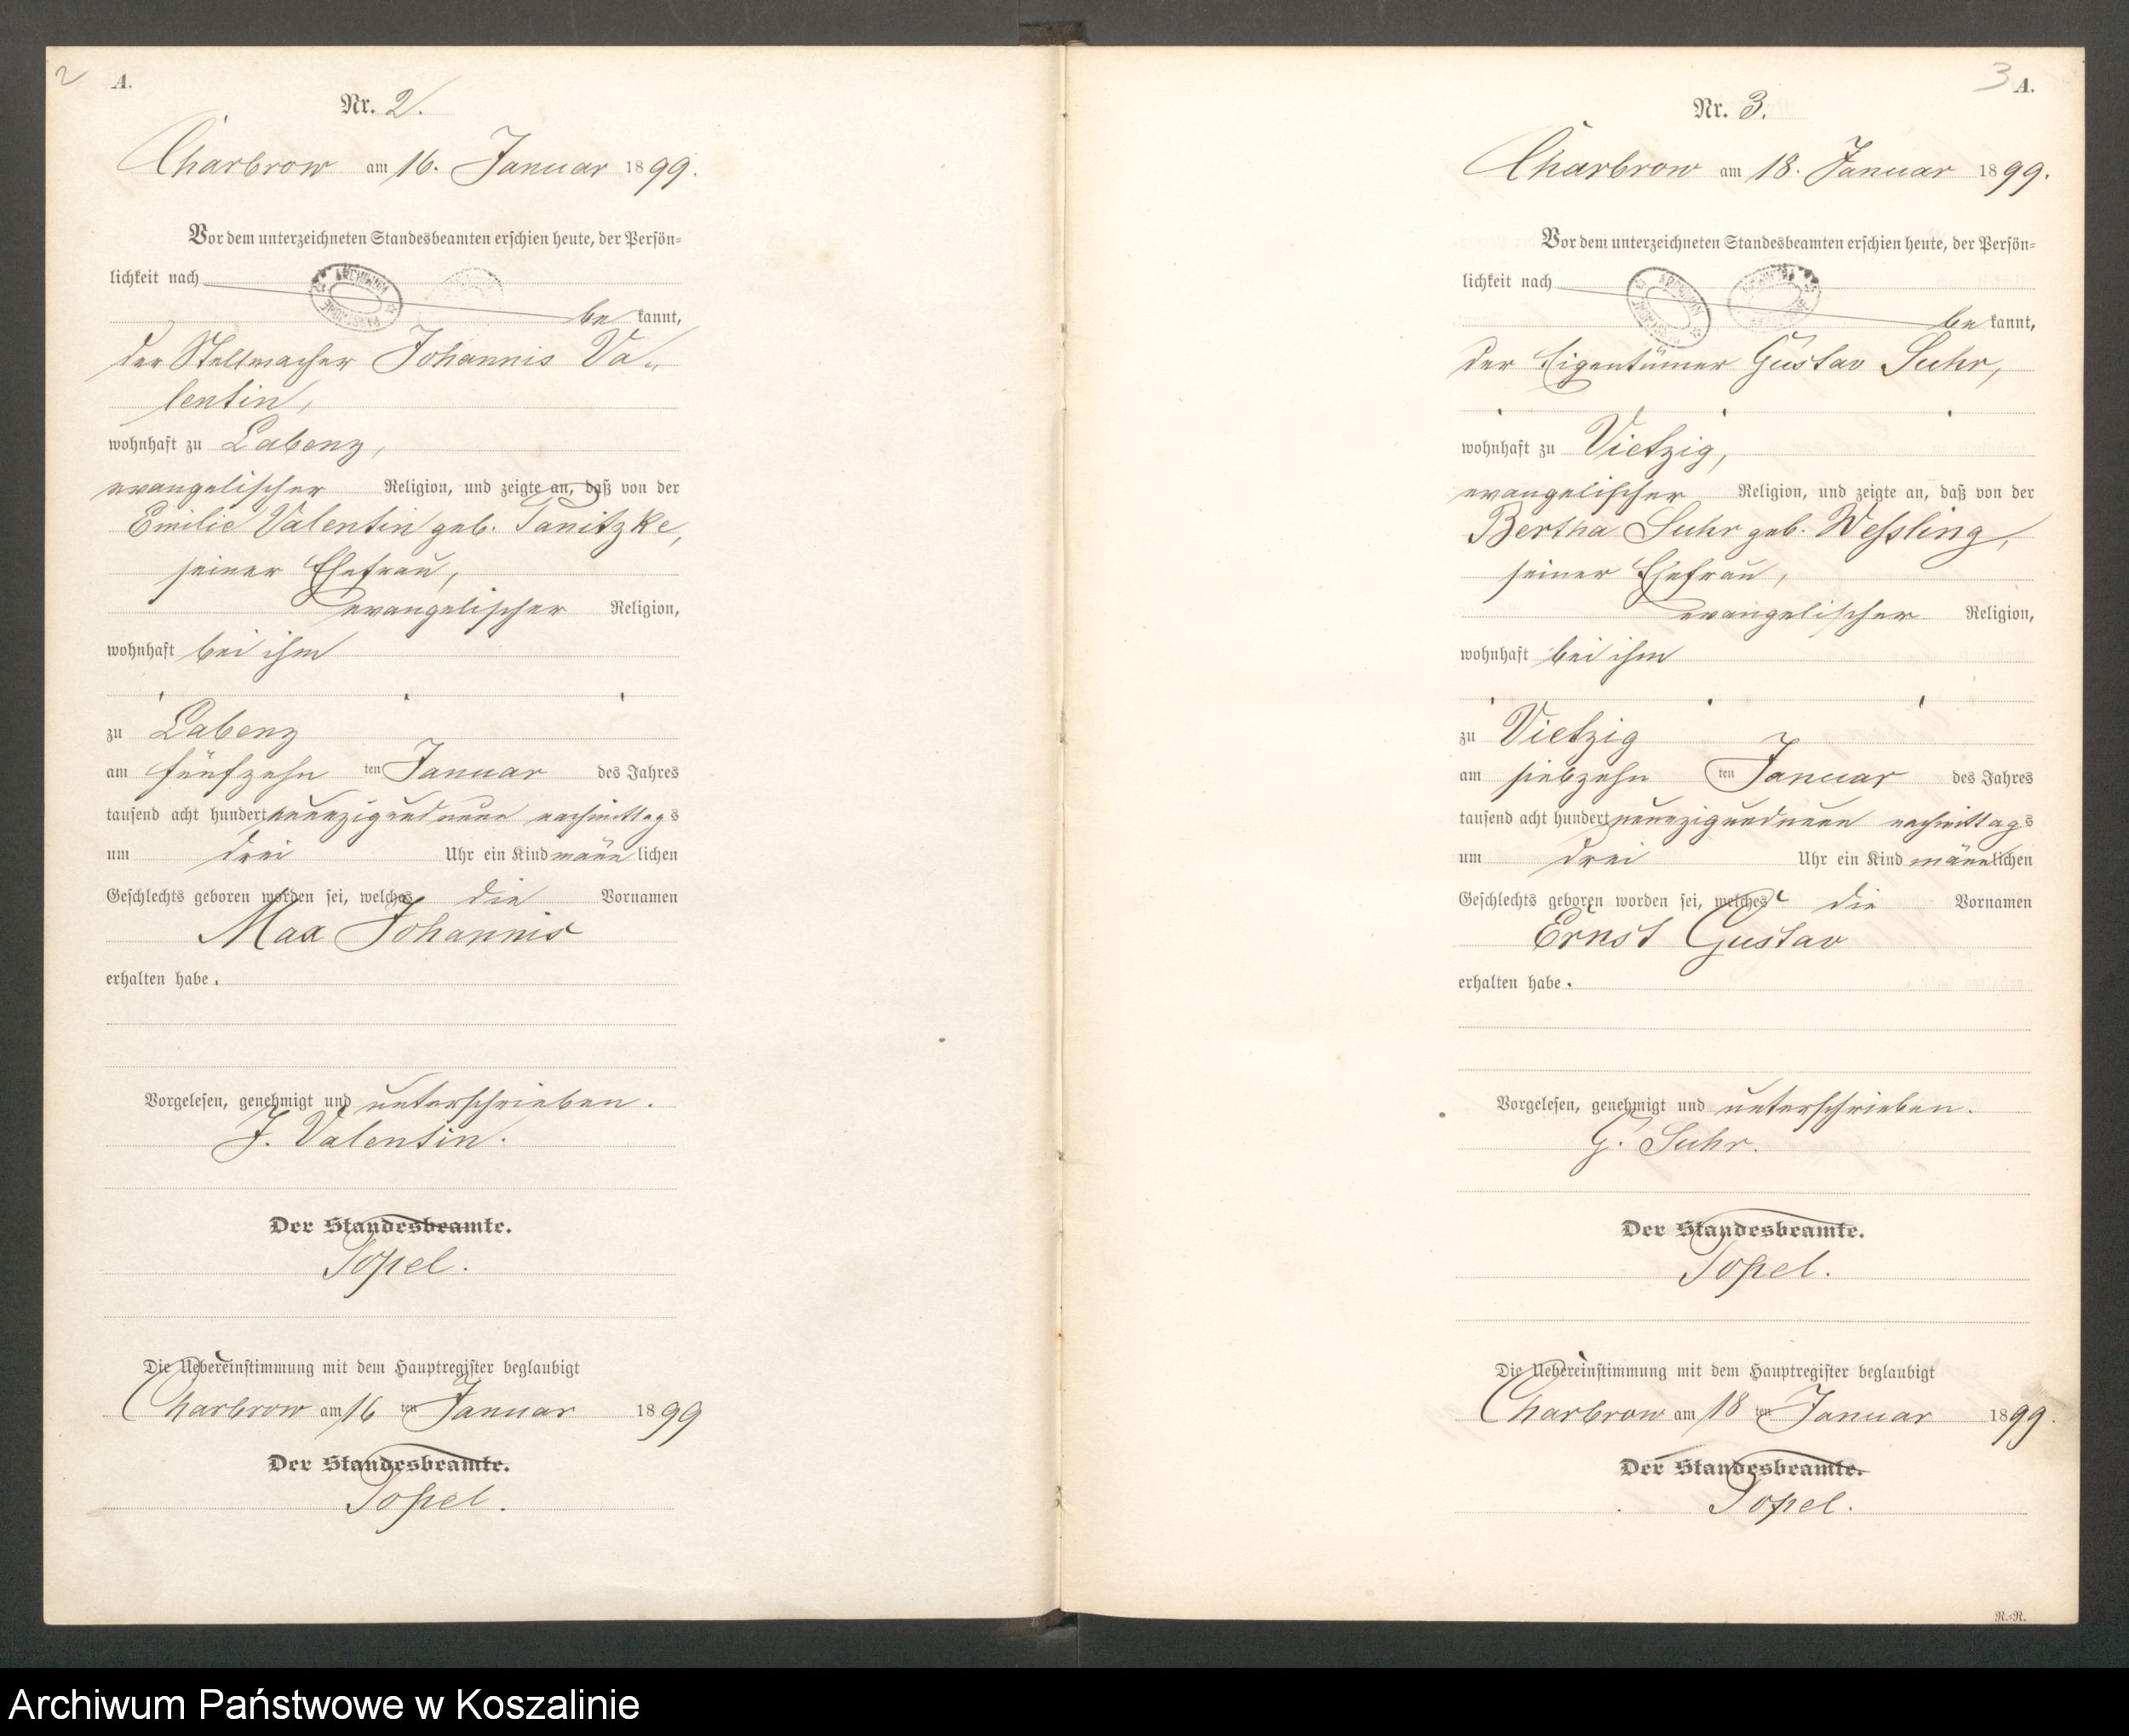 2
A.
Nr. 2.
Charbrow am 16. Januar 1899.
Vor dem unterzeichneten Standesbeamten erschien heute, der Persön-
lichkeit nach
be kannt,
der Stellmacher Johannis Va-
lentin,
wohnhaft zu Labenz,
evangelischer Religion, und zeigte an, daß von der
Emilie Valentin geb. Tanitzke,
seiner Ehefrau,
evangelischer Religion,
wohnhaft bei ihm
zu Labenz
am fünfzehn ten Januar des Jahres
tausend acht hundert neunzigundneun nachmittags
um drei Uhr ein Kind männ lichen
Geschlechts geboren worden sei, welches die Vornamen
Max Johannis
erhalten habe.
Vorgelesen, genehmigt und unterschrieben.
J. Valentin.
Der Standesbeamte.
Topel.
Die Uebereinstimmung mit dem Hauptregister beglaubigt
Charbrow am 16 ten Januar 1899
Der Standesbeamte.
Topel.
3
A.
Nr. 3.
Charbrow am 18. Januar 1899.
Vor dem unterzeichneten Standesbeamten erschien heute, der Persön-
lichkeit nach
be kannt,
der Eigentümer Gustav Suhr,
wohnhaft zu Vietzig,
evangelischer Religion, und zeigte an, daß von der
Bertha Suhr geb. Weßling,
seiner Ehefrau,
evangelischer Religion,
wohnhaft bei ihm
zu Vietzig
am siebzehn ten Januar des Jahres
tausend acht hundert neunzigundneun nachmittags
um drei Uhr ein Kind männlichen
Geschlechts geboren worden sei, welches die Vornamen
Ernst Gustav
erhalten habe.
Vorgelesen, genehmigt und unterschrieben.
G. Suhr.
Der Standesbeamte.
Topel.
Die Uebereinstimmung mit dem Hauptregister beglaubigt
Charbrow am 18 ten Januar 1899.
Der Standesbeamte.
Topel.
R.-R.
Archiwum Państwowe w Koszalinie